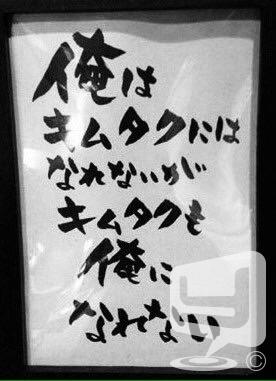 俺は
キムタクには
なれないが
キムタクも
俺に
なれない
©